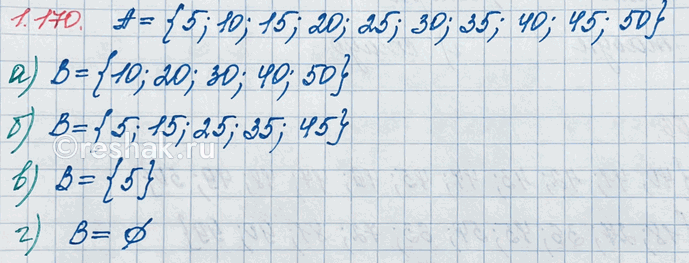 1.170. A = {5; 10; 15; 20; 25; 30; 35; 40; 45; 50}
а) B = {10; 20; 30; 40; 50}
б) B = {5; 15; 25; 35; 45}
©reshak.ru
в) B = {5}
г) B = ∅